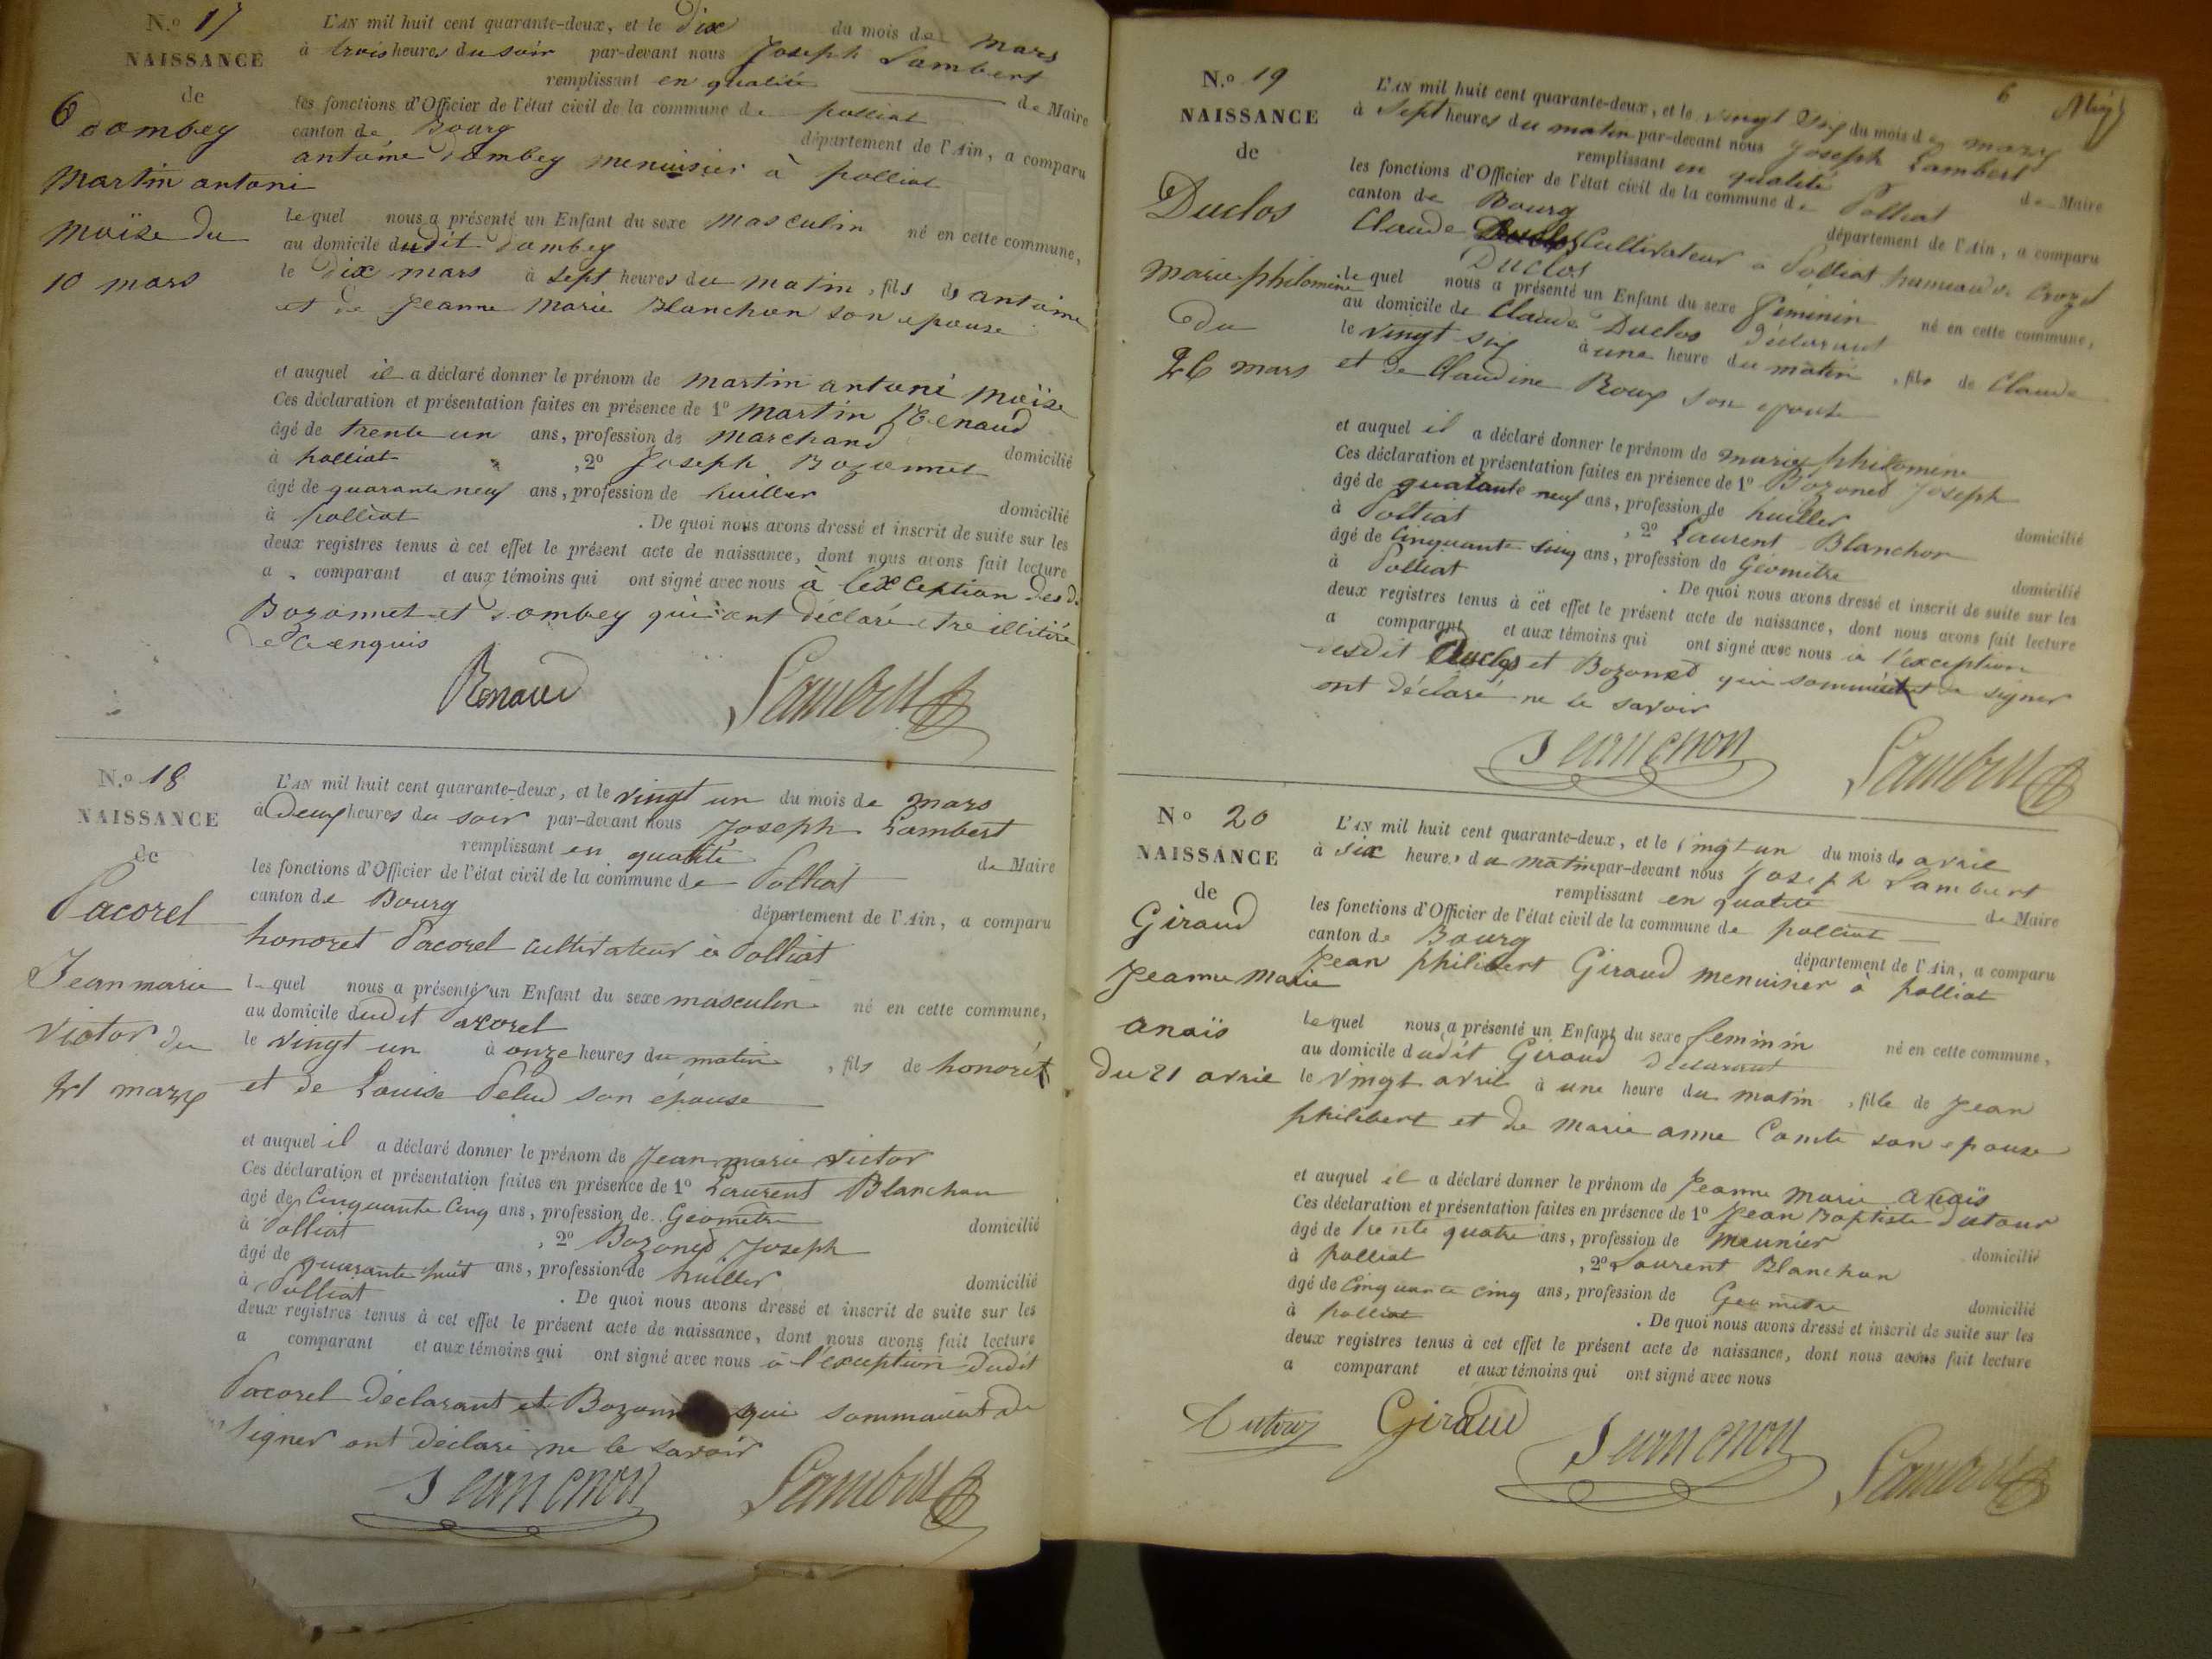 N.o 17
NAISSANCE
de
Dombey
Martin antoni
moïse du
10 mars
L'AN mil huit cent quarante-deux, et le Dix du mois de mars
à trois heures du soir par-devant nous Joseph Lambert
remplissant en qualité de Maire
les fonctions d'Officier de l'état civil de la commune de polliat
canton de Bourg département de l'Ain, a comparu
antoine Dombey menuisier à polliat
lequel nous a présenté un Enfant du sexe masculin né en cette commune,
au domicile dudit Dombey
le Dix mars à sept heures du matin, fils de antoine
et de Jeanne Marie Blanchon son epouse
et auquel il a déclaré donner le prénom de martin antoni moïse
Ces déclaration et présentation faites en présence de 1º martin Renaud
âgé de trente un ans, profession de marchand domicilié
à polliat, 2º Joseph Bozonnet
âgé de quarante neuf ans, profession de huillier domicilié
à polliat. De quoi nous avons dressé et inscrit de suite sur les
deux registres tenus à cet effet le présent acte de naissance, dont nous avons fait lecture
a comparant et aux témoins qui ont signé avec nous à l'exception des d.
Bozonnet et Dombey qui ont déclaré etre illitiré
de ce enquis
Renaud Lambert
N.o 18
NAISSANCE
de
Pacorel
Jean marie
victor du
21 mars
L'AN mil huit cent quarante-deux, et le vingt un du mois de mars
à Deux heures du soir par-devant nous Joseph Lambert
remplissant en qualité de Maire
les fonctions d'Officier de l'état civil de la commune de Polliat
canton de Bourg département de l'Ain, a comparu
honoret Pacorel cultivateur à Polliat
lequel nous a présenté un Enfant du sexe masculin né en cette commune,
au domicile dudit Pacorel
le vingt un à onze heures du matin, fils de honoret
et de Louise Pelud son épouse
et auquel il a déclaré donner le prénom de Jean marie victor
Ces déclaration et présentation faites en présence de 1º Laurent Blanchon
âgé de Cinquante Cinq ans, profession de Géomètre domicilié
à Polliat, 2º Bozoned Joseph
âgé de quarante huit ans, profession de huillier domicilié
à Polliat. De quoi nous avons dressé et inscrit de suite sur les
deux registres tenus à cet effet le présent acte de naissance, dont nous avons fait lecture
a comparant et aux témoins qui ont signé avec nous à l'exception dudit
Pacorel déclarant et qui sommairement de
signer ont déclaré ne le savoir
Lambert
6
N.o 19
NAISSANCE
de
Duclos
Marie philomène
du
26 mars
L'AN mil huit cent quarante-deux, et le vingt Six du mois de mars
à Sept heures du matin par-devant nous Joseph Lambert
remplissant en qualité de Maire
les fonctions d'Officier de l'état civil de la commune de Polliat
canton de Bourg département de l'Ain, a comparu
Claude Cultivateur à Polliat hameau de Crozet
Duclos
lequel nous a présenté un Enfant du sexe féminin né en cette commune,
au domicile de Claude Duclos déclarant
le vingt six à une heure du matin, fils de Claude
et de Claudine Roux son épouse
et auquel il a déclaré donner le prénom de marie philomène
Ces déclaration et présentation faites en présence de 1º Bozoned Joseph
âgé de quarante neuf ans, profession de huillier domicilié
à Polliat, 2º Laurent Blanchon
âgé de Cinquante Cinq ans, profession de Géomètre domicilié
à Polliat. De quoi nous avons dressé et inscrit de suite sur les
deux registres tenus à cet effet le présent acte de naissance, dont nous avons fait lecture
a comparant et aux témoins qui ont signé avec nous à l'exception
desdit Duclos et Bozoned qui de signer
ont déclaré ne le savoir
Lambert
N.o 20
NAISSANCE
de
Giraud
Jeanne Marie
anaïs
du 21 avril
L'AN mil huit cent quarante-deux, et le vingt un du mois de avril
à six heures du matin par-devant nous Joseph Lambert
remplissant en qualité de Maire
les fonctions d'Officier de l'état civil de la commune de polliat
canton de Bourg département de l'Ain, a comparu
Jean philibert Giraud menuisier à polliat
lequel nous a présenté un Enfant du sexe feminin né en cette commune,
au domicile dudit Giraud déclarant
le vingt avril à une heure du matin, fille de Jean
philibert et de marie anne Comte son epouse
et auquel il a déclaré donner le prénom de Jeanne marie anaïs
Ces déclaration et présentation faites en présence de 1º Jean Baptiste dutour
âgé de trente quatre ans, profession de meunier domicilié
à polliat, 2º Laurent Blanchon
âgé de Cinquante cinq ans, profession de Geometre domicilié
à polliat. De quoi nous avons dressé et inscrit de suite sur les
deux registres tenus à cet effet le présent acte de naissance, dont nous avons fait lecture
a comparant et aux témoins qui ont signé avec nous
Dutour Giraud Lambert